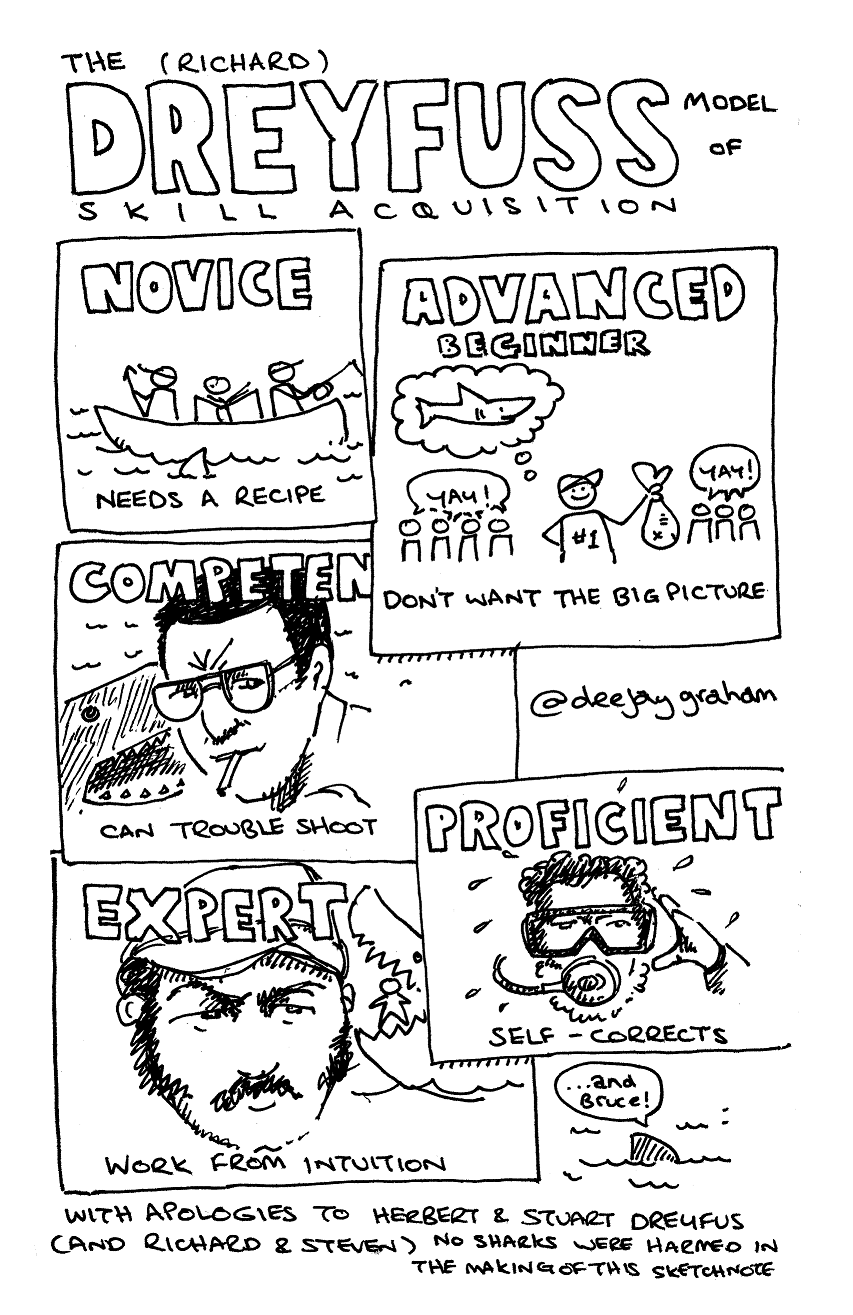 THE (RICHARD)
DREYFUSS MODEL OF
SKILL ACQUISITION
NOVICE
NEEDS A RECIPE
ADVANCED
BEGINNER
YAY!
YAY!
#1
DON'T WANT THE BIG PICTURE
COMPETEN
CAN TROUBLE SHOOT
@deejaygraham
PROFICIENT
SELF-CORRECTS
EXPERT
WORK FROM INTUITION
...and
Bruce!
WITH APOLOGIES TO HERBERT & STUART DREYFUS
(AND RICHARD & STEVEN) NO SHARKS WERE HARMED IN
THE MAKING OF THIS SKETCHNOTE